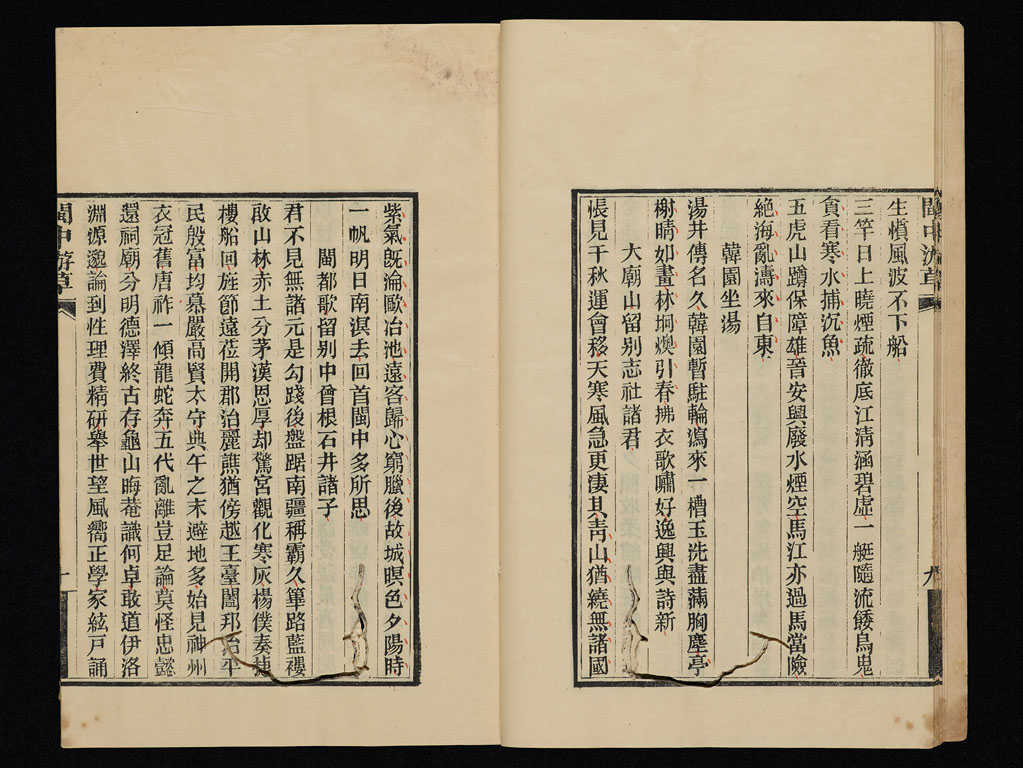 閩中游草
九
生憤風波不下船
三竿日上曉煙疏徹底江淸涵碧虛一艇隨流餧烏鬼
貪看寒水捕沉魚
五虎山蹲保障雄晉安興廢水煙空馬江亦過馬當險
絶海亂濤來自東
韓園坐湯
湯井傳名久韓園暫駐輪瀉來一槽玉洗盡滿胸塵亭
榭晴如畫林坰煗引春拂衣歌嘯好逸興與詩新
大廟山留別志社諸君
悵見千秋運會移天寒風急更淒其靑山猶繞無諸國
紫氣旣淪歐冶池遠客歸心窮臘後故城暝色夕陽時
一帆明日南溟去回首閩中多所思
閩都歌留別中曾根石井諸子
君不見無諸元是勾踐後盤踞南疆稱霸久篳路藍褸
啟山林赤土分茅漢恩厚却驚宮觀化寒灰楊僕奏捷
樓船回旌節遠莅開郡治麗譙猶傍越王臺闔邦石平
民殷富均慕嚴高賢太守典午之末避地多始見神州
衣冠舊唐祚一傾龍蛇奔五代亂離豈足論莫怪忠懿
還祠廟分明德澤終古存龜山晦菴識何卓敢道伊洛
淵源邈論到性理費精硏擧世望風嚮正學家絃戸誦
閩中游草
十